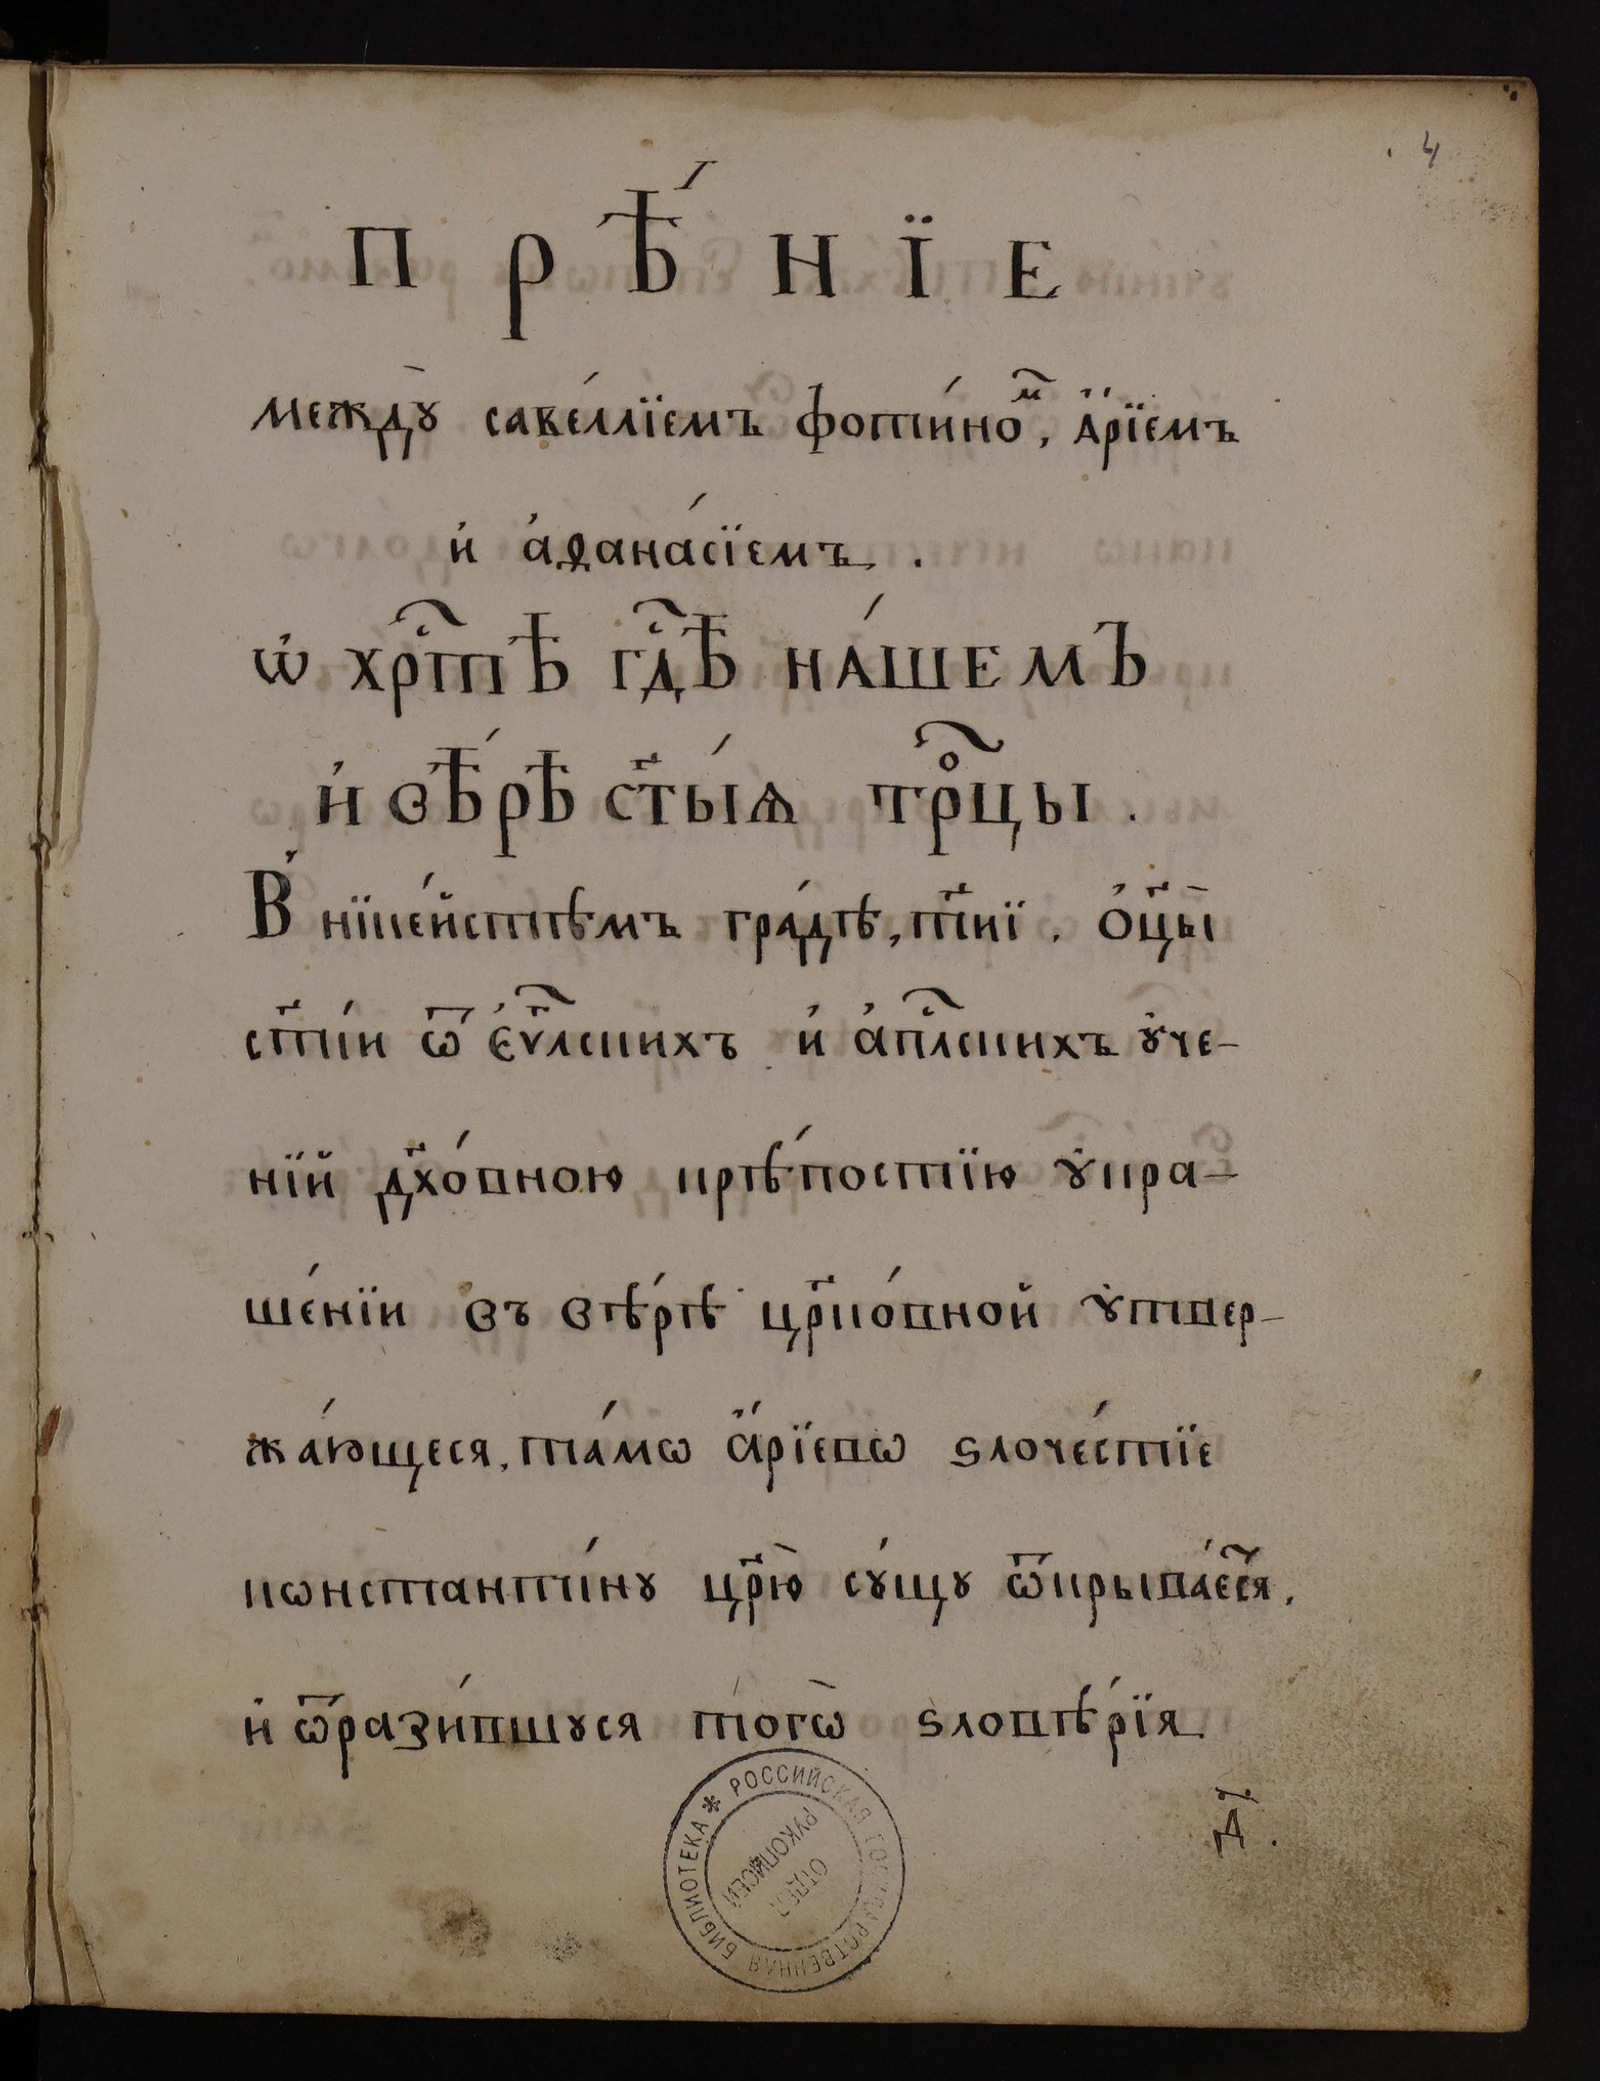 4
ПРѢ́НЇЕ
междꙋ̀ саве́ллїемъ фоти́но͠м, а҆́рїемъ
и҆ а҆ѳана́сїемъ.
ѡ҆ хрⷭ҇тѣ гдⷭ҇ѣ на́шемъ
и҆ вѣ́рѣ ст҃ы́ѧ трⷪ҇цы.
В҆ нїке́йстѣмъ гра́дѣ, т҃иї. ѻ҆ц҃ы̀
ст҃і́и ѿ є҆ѵⷢ҇лскихъ и҆ а҆пⷭ҇лскихъ ᲂу҆че-
нїй дх҃о́вною крѣ́постїю ᲂу҆кра-
ше́нїи въ вѣ́рѣ цр҃ко́вной ᲂу҆твер-
жа́ющеся, та́мѡ а҆́рїевѡ ѕлоче́стїе
кѡнстанти́нꙋ цр҃ю̀ сꙋ́щꙋ ѿкрыва́єⷭ҇ся,
и҆ ѿрази́вшꙋся тогѡ̀ ѕловѣ́рїя
д҃.
РОССИЙСКАЯ ГОСУДАРСТВЕННАЯ БИБЛИОТЕКА *
ОТДЕЛ
РУКОПИСЕЙ